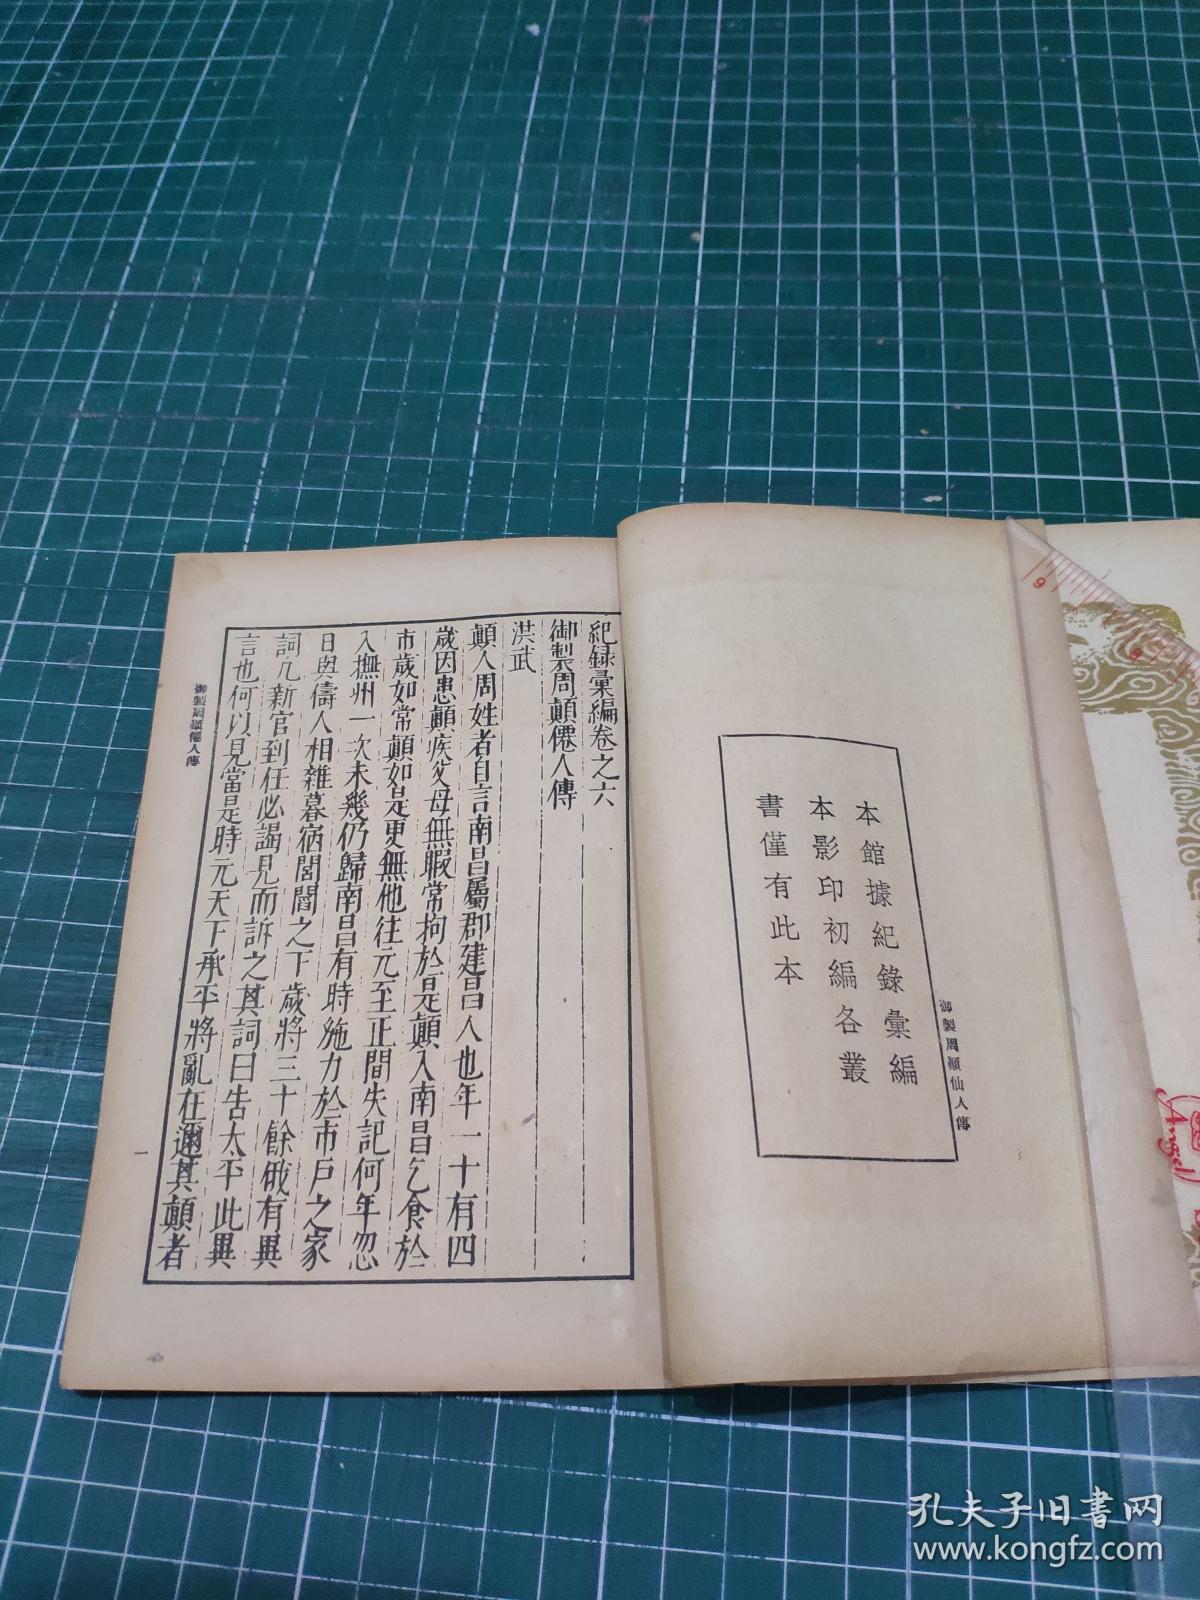 本館據紀錄彙編
本影印初編各叢
書僅有此本
御製周顚仙人傳
紀録彙編卷之六
御製周顛僊人傳
洪武
顛人周姓者自言南昌屬郡建昌人也年一十有四
歲因患顛疾父母無暇常拘於是顛入南昌乞食於
市歲如常顛如是更無他往元至正間失記何年忽
入撫州一次未幾仍歸南昌有時施力於市戶之家
日與儔人相雜暮宿閭閻之下歲將三十餘俄有異
詞凢新官到任必謁見而訴之其詞曰告太平此異
言也何以見當是時元天下承平將亂在邇其顛者
御製周顚僊人傳
一
9
8
Angel
孔夫子旧书网
www.kongfz.com